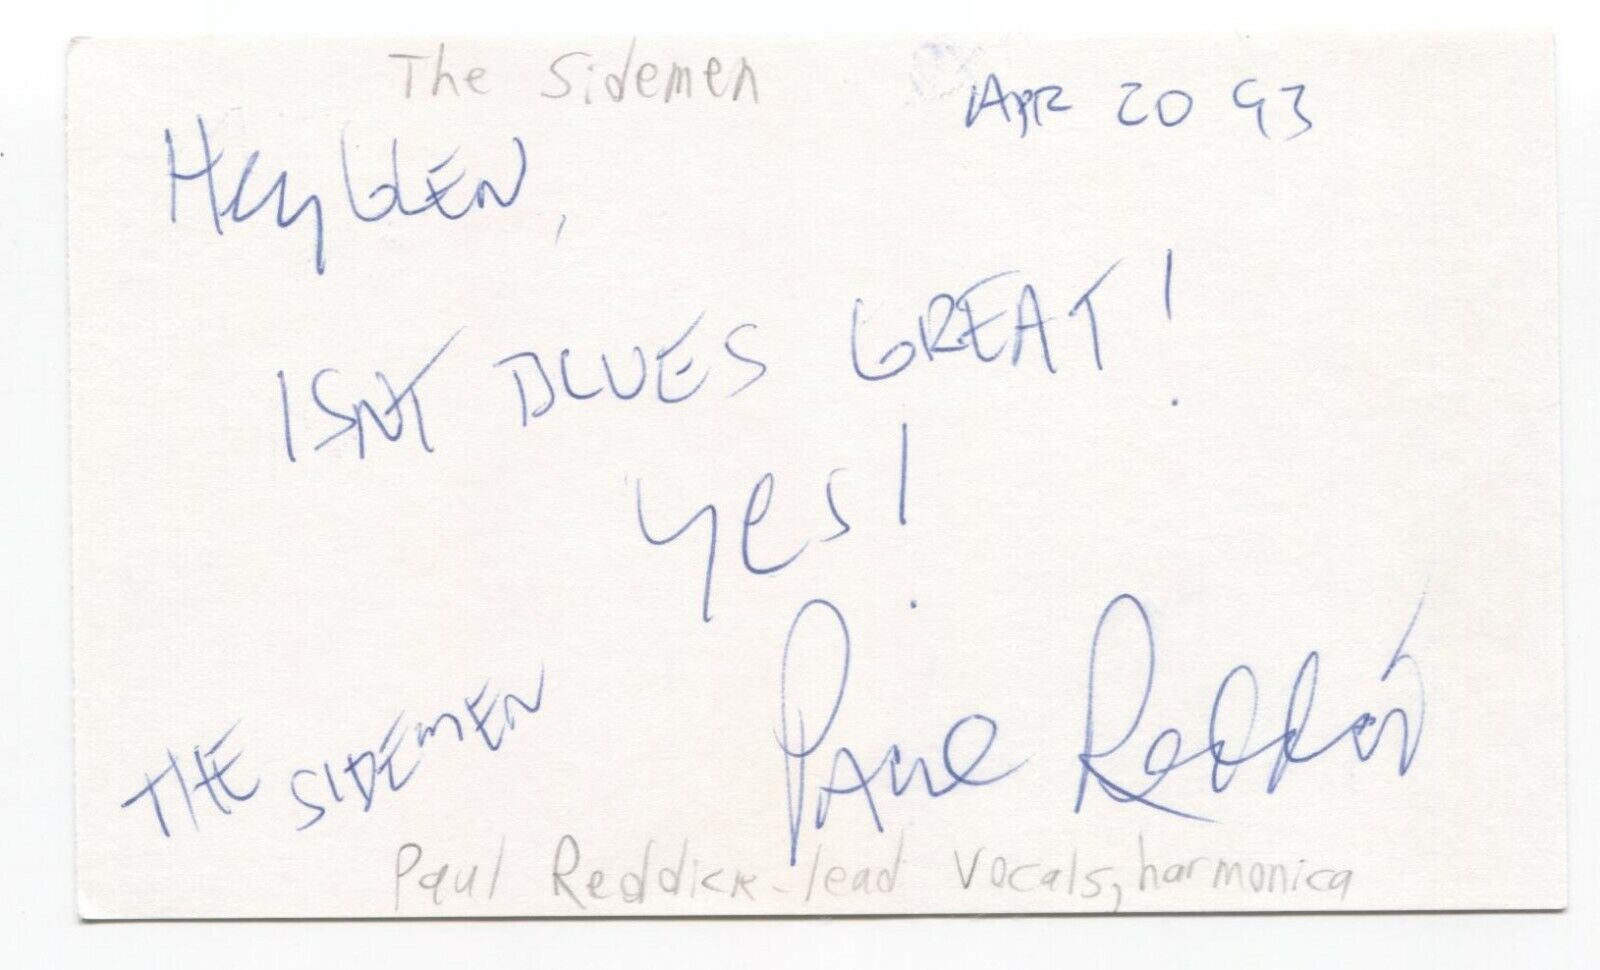 The Sidemen
APR 20 93
Hey GLEN,
ISNT BLUES GREAT!
Yes!
THE SIDEMEN
PAUL Reddick
Paul Reddick - lead vocals, harmonica